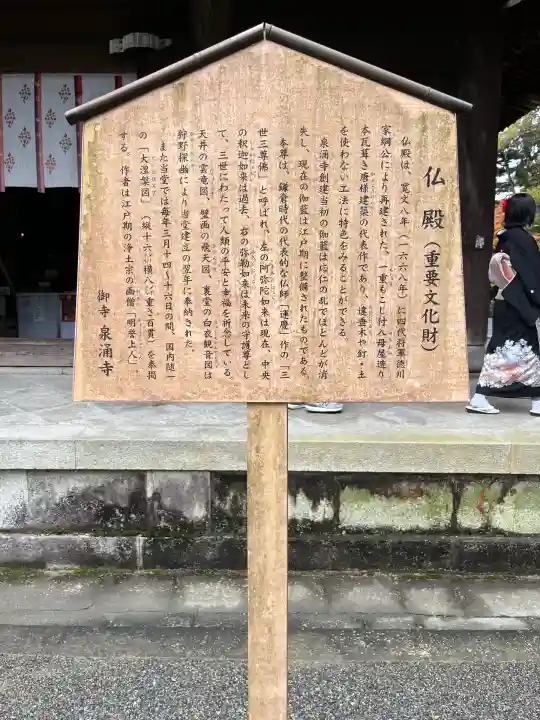 仏殿（重要文化財）
仏殿は、寛文八年（一六六八年）に四代将軍徳川
家綱公により再建された、一重もこし付入母屋造り
本瓦葺き唐様建築の代表作であり、遠垂木や釘・土
を使わない工法に特色をみることができる。
泉涌寺創建当初の伽藍は応仁の乱でほとんどが消
失し、現在の伽藍は江戸期に整備されたものである。
本尊は、鎌倉時代の代表的な仏師「運慶」作の「三
世三尊佛」と呼ばれ、左の阿弥陀如来は現在、中央
の釈迦如来は過去、右の弥勒如来は未来の守護尊とし
て、三世にわたって人類の平安と幸福を祈念している。
天井の雲竜図、壁画の飛天図、裏堂の白衣観音図は
狩野探幽により当堂建立の翌年に奉納された。
また当堂では毎年三月十四〜十六日の間、国内随一
の「大涅槃図」（縦十六㍍横八㍍重さ百貫）を奉掲
する。作者は江戸期の浄土宗の画僧「明誉上人」
御寺 泉涌寺